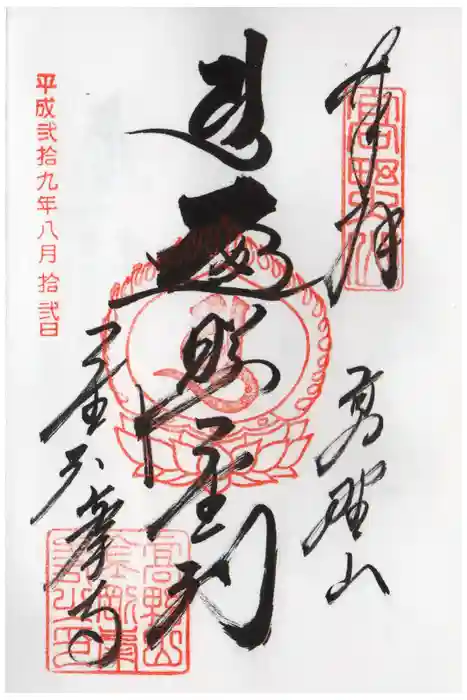 奉拝
高野山
遍照金剛
金剛峯寺
平成弐拾九年八月拾弐日
高野山